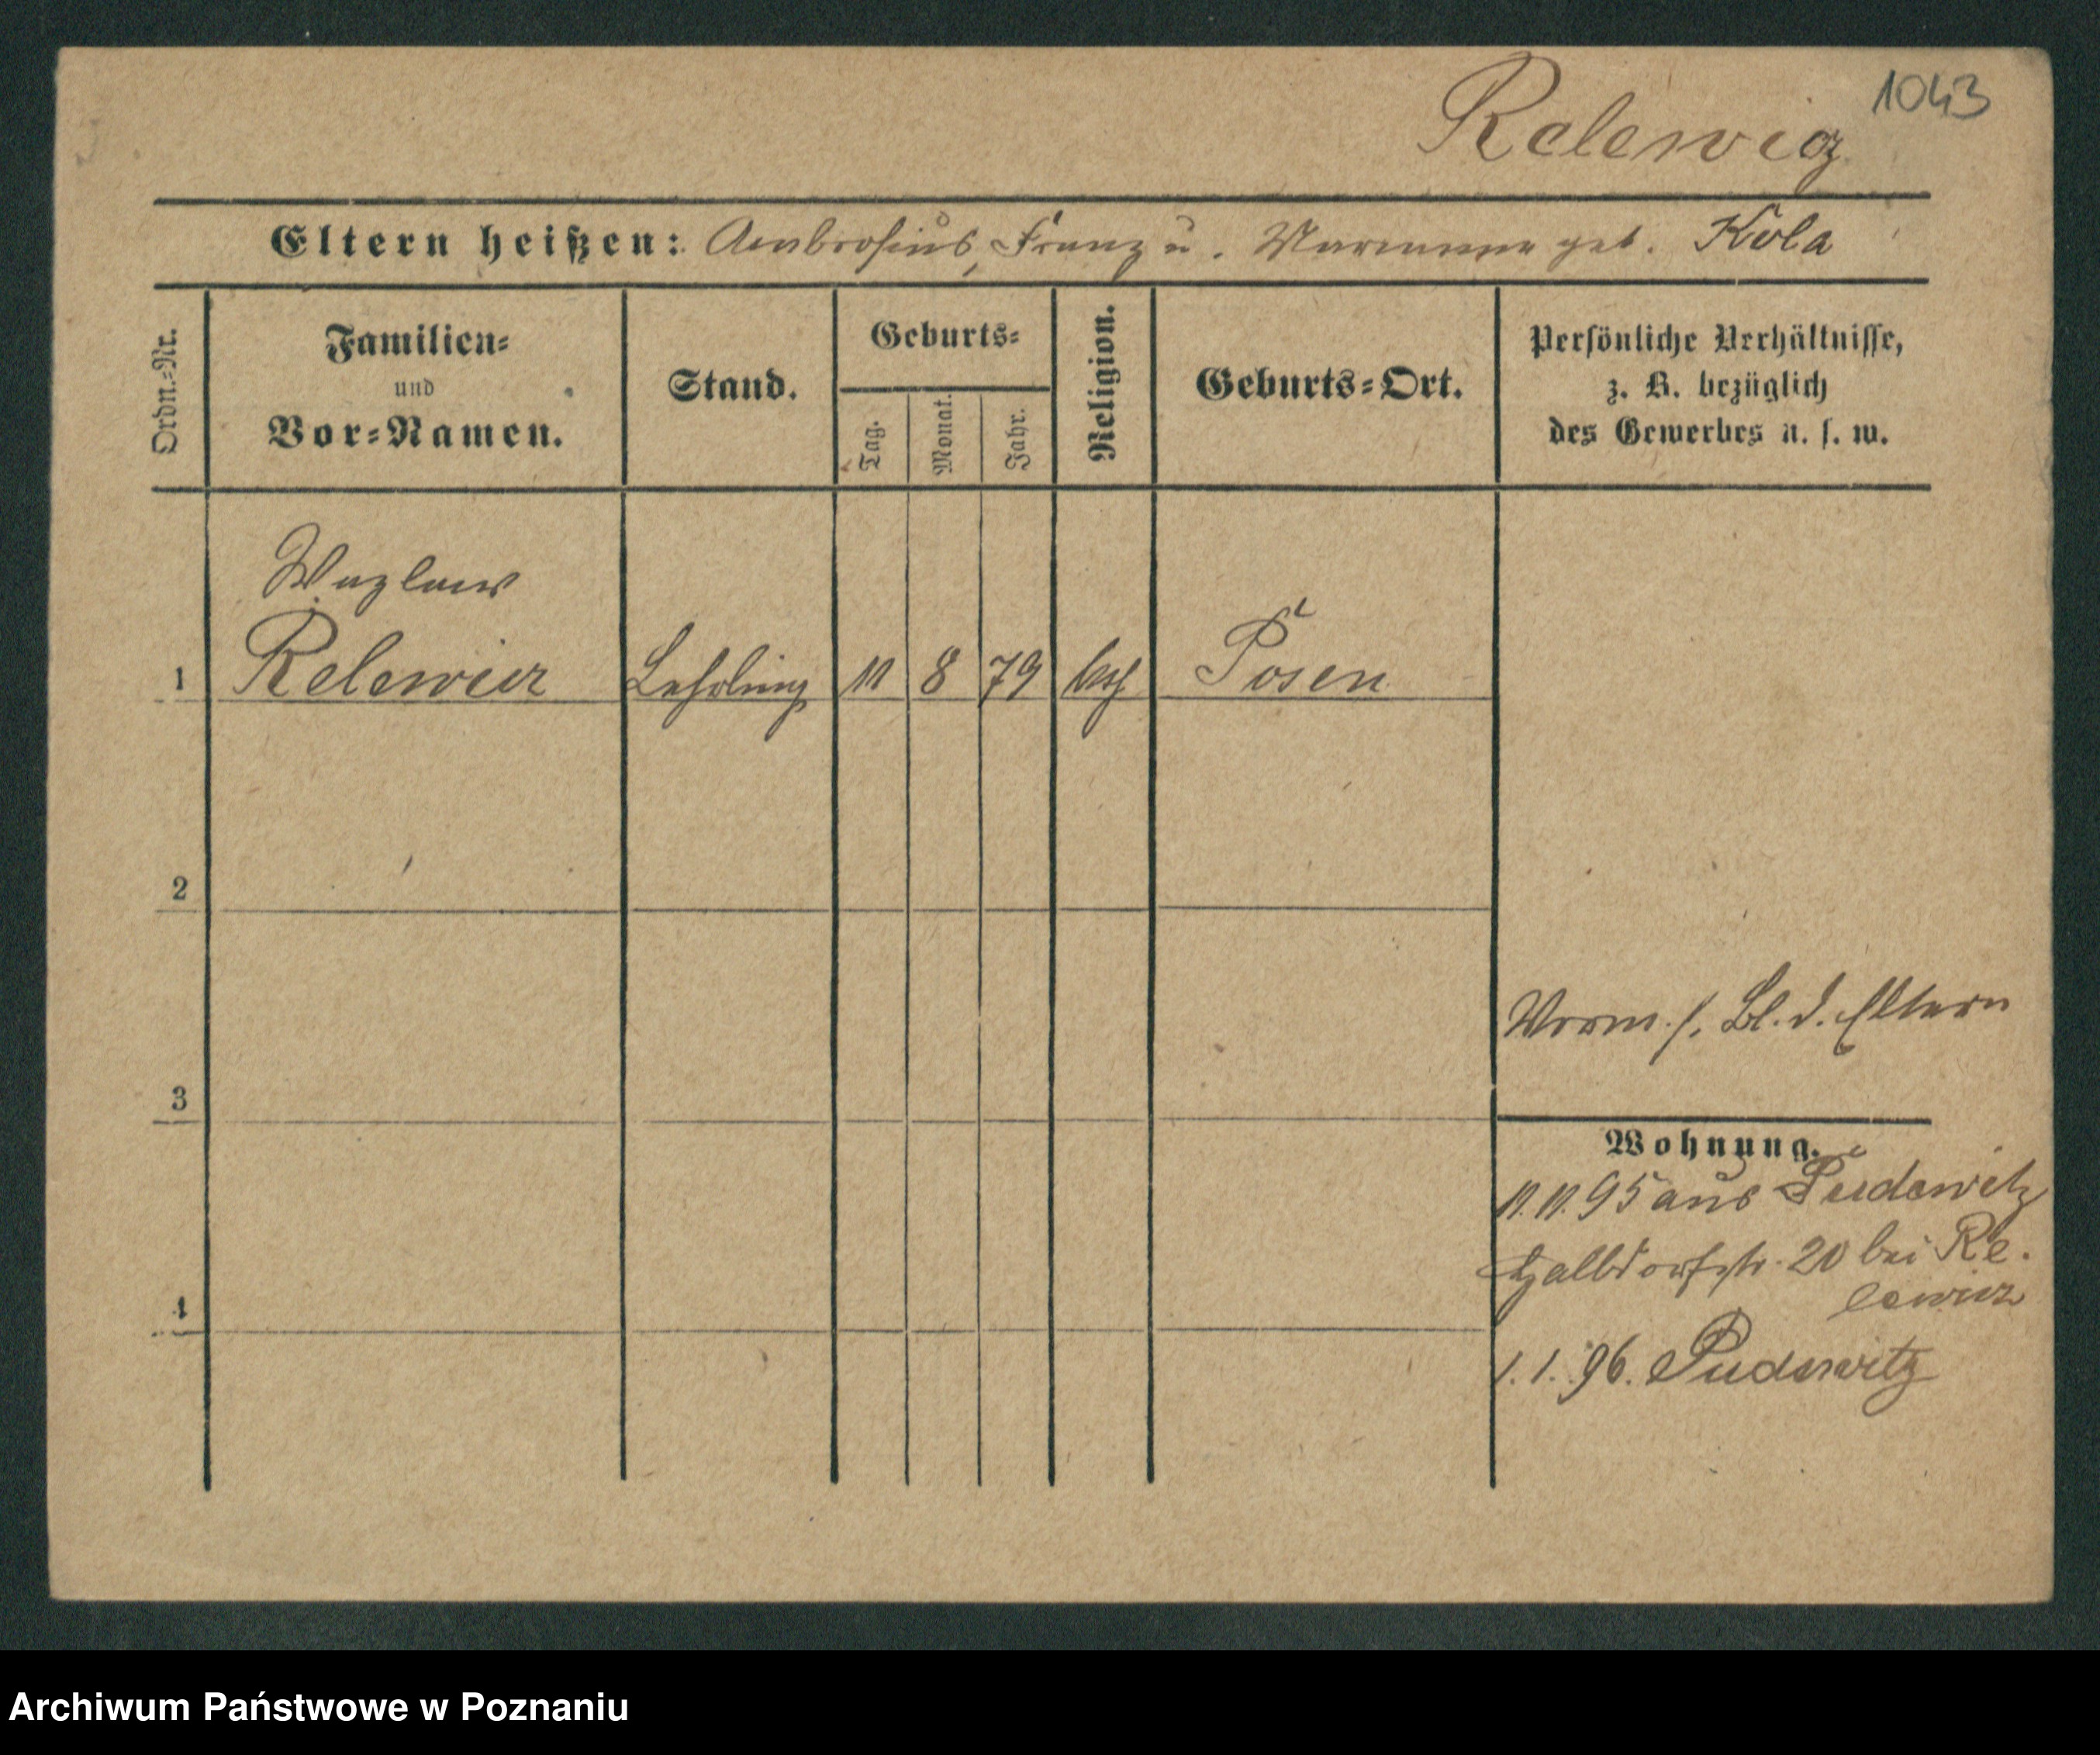 1043
Relewicz
Eltern heißen: Ambrosius, Franz u. Marianna geb. Kola
Ordn.-Nr.
Familien-
und
Vor-Namen.
Stand.
Geburts-
Tag.
Monat.
Jahr.
Religion.
Geburts-Ort.
Persönliche Verhältnisse,
z. B. bezüglich
des Gewerbes u. s. w.
Wazlaw
1 Relewicz Lehrling 11 8 79 kath Posen
2
3
4
Verm. s. Bl. d. Eltern
Wohnung.
11.11.95 aus Pudewitz
Halbdorfstr. 20 bei Re-
lewicz
1.1.96. Pudewitz
Archiwum Państwowe w Poznaniu